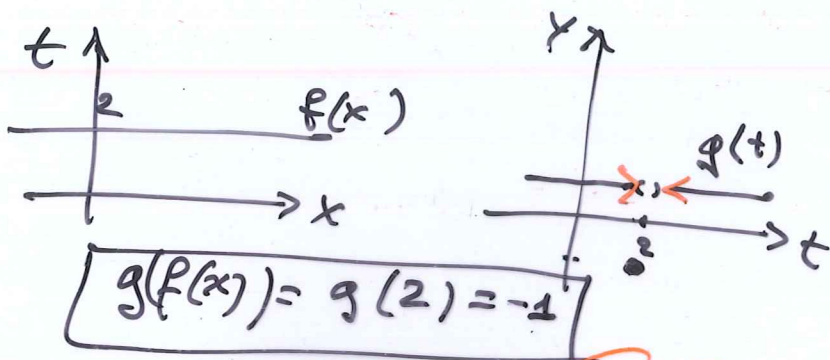 t
2
f(x)
x
y
g(t)
2
t
g(f(x)) = g(2) = -1